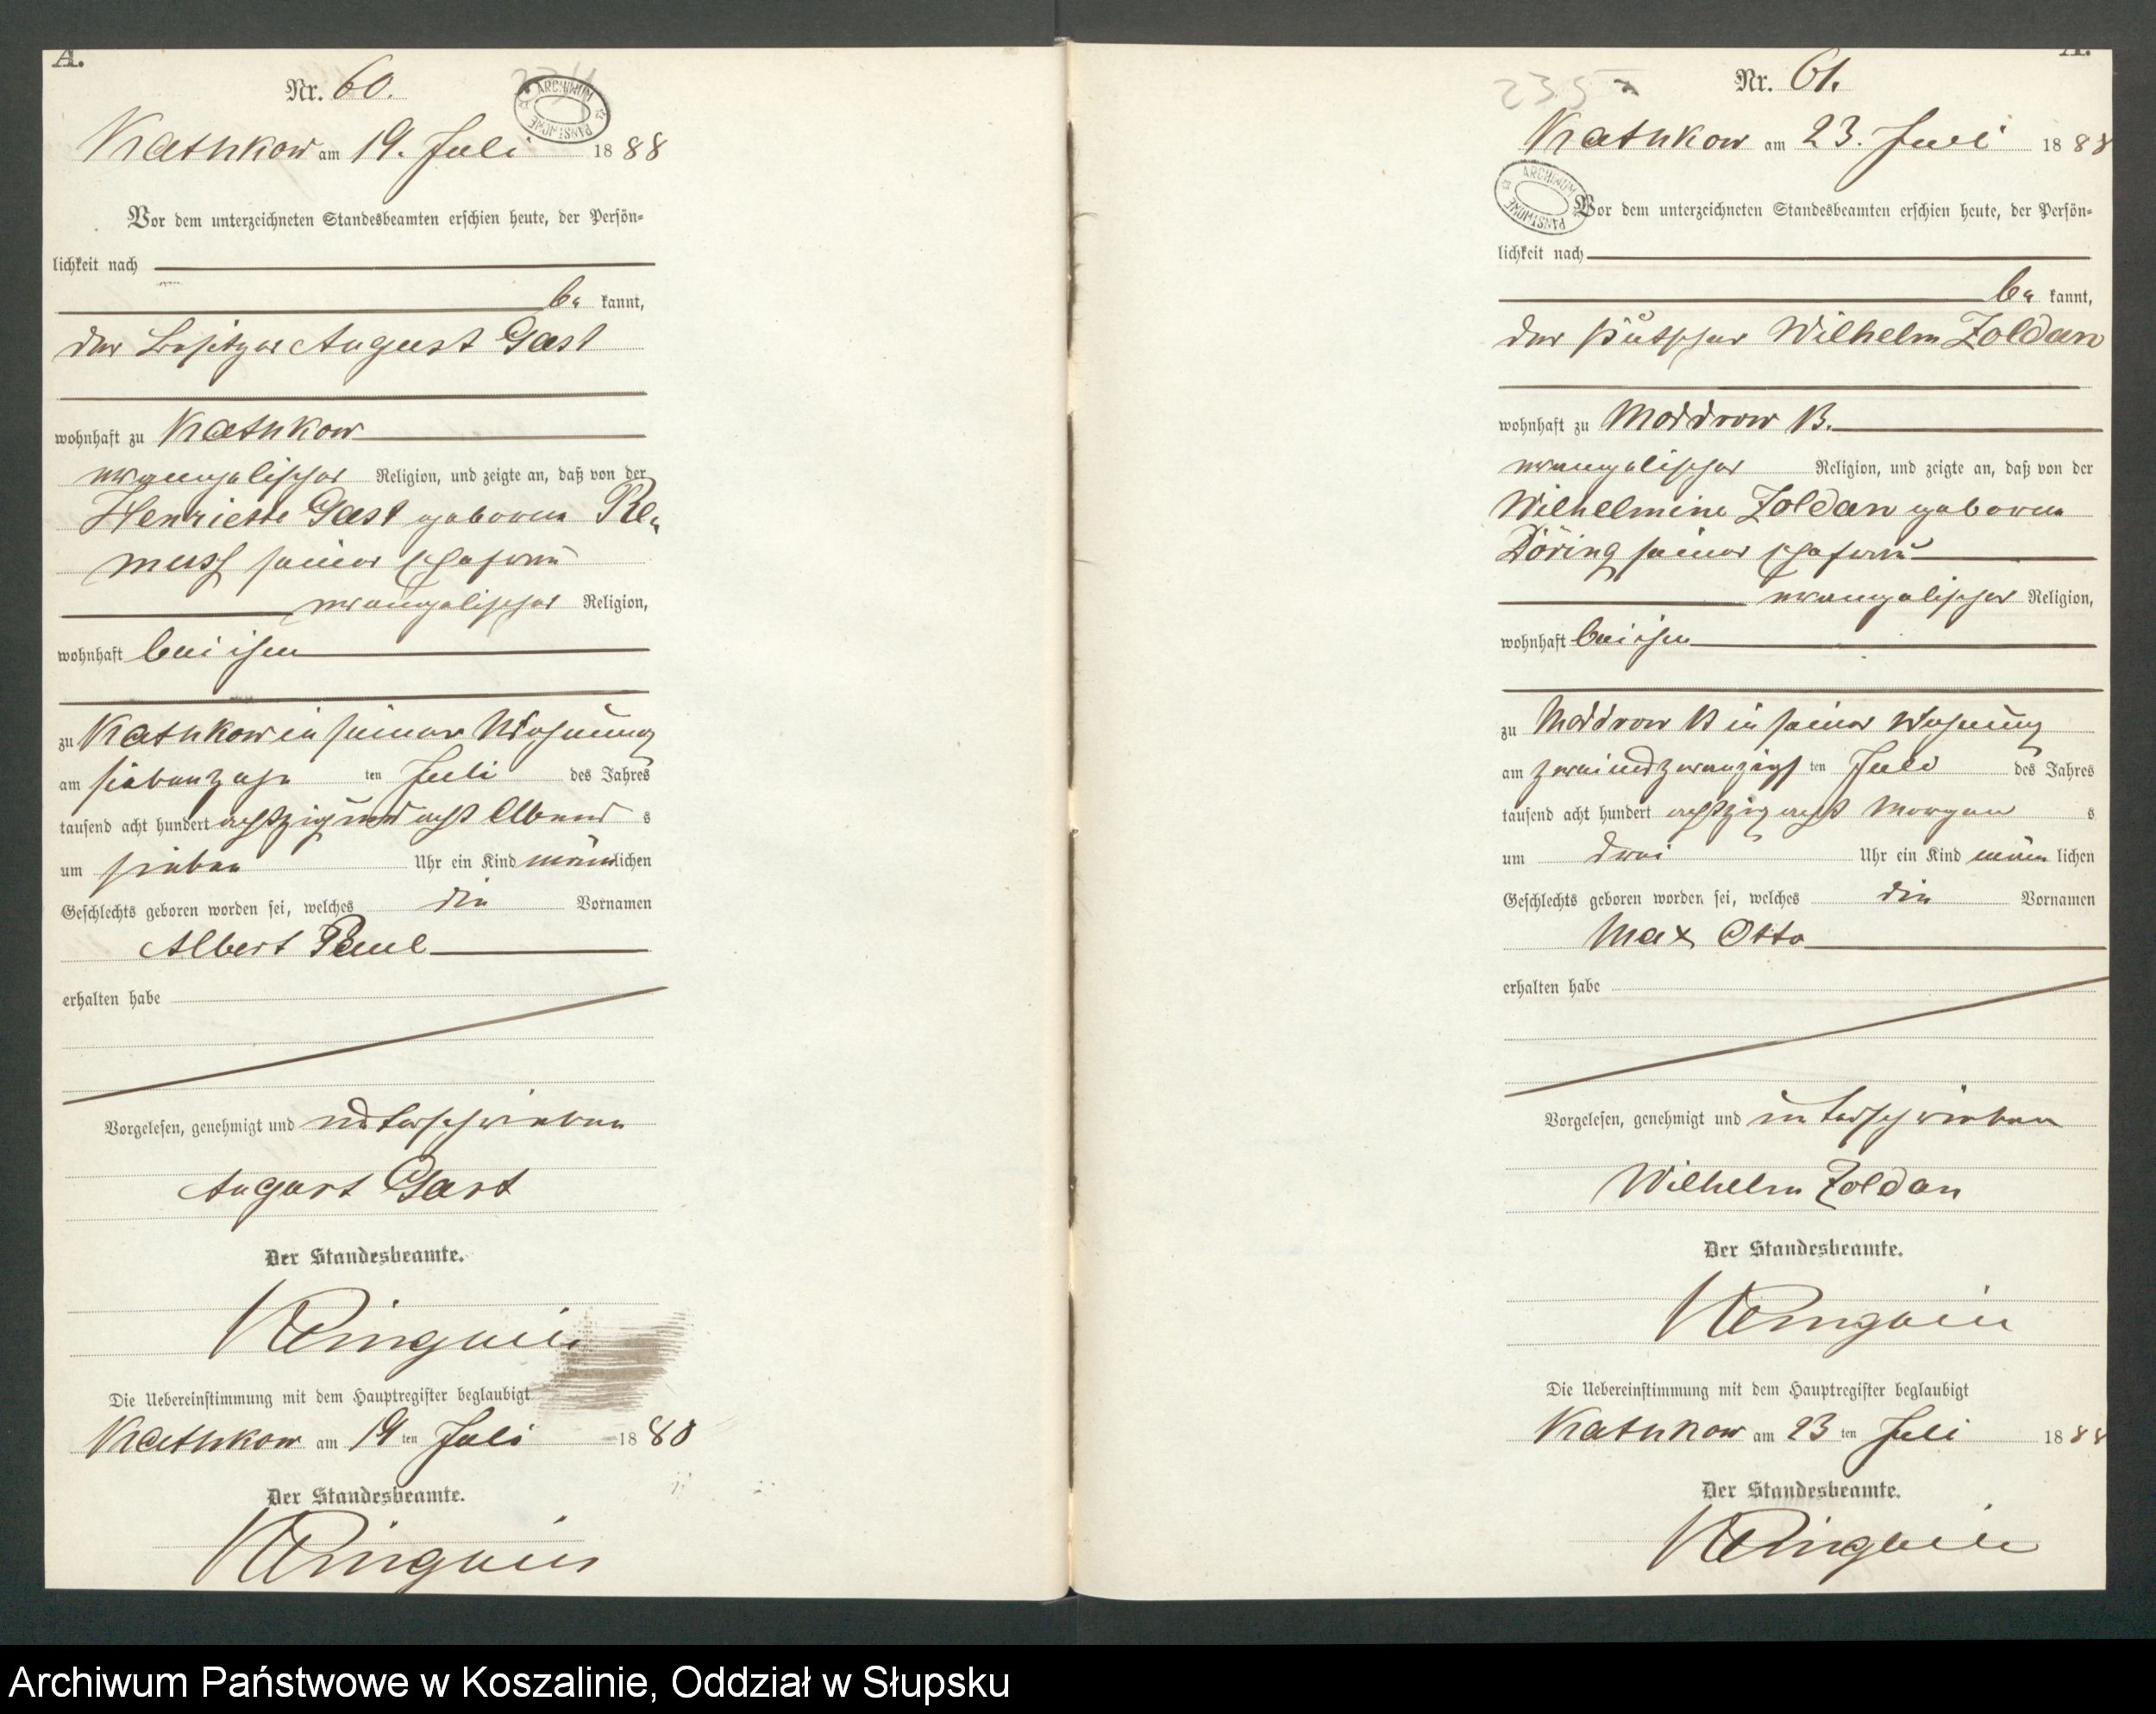 A.
Nr. 60.
234
ARCHIWUM PAŃSTWOWE
Kathkow am 19. Juli 1888
Vor dem unterzeichneten Standesbeamten erschien heute, der Persön=
lichkeit nach
be kannt,
der Besitzer August Gast
wohnhaft zu Kathkow
evangelischer Religion, und zeigte an, daß von der
Henriette Gast geborene Re=
muss seiner Ehefrau
evangelischer Religion,
wohnhaft bei ihm
zu Kathkow in seiner Wohnung
am siebenzehn ten Juli des Jahres
tausend acht hundert achtzig und acht Abend s
um sieben Uhr ein Kind männlichen
Geschlechts geboren worden sei, welches die Vornamen
Albert Paul
erhalten habe
Vorgelesen, genehmigt und unterschrieben
August Gast
Der Standesbeamte.
Die Uebereinstimmung mit dem Hauptregister beglaubigt
Kathkow am 19 ten Juli 1888
Der Standesbeamte.
A.
Nr. 61.
235
Kathkow am 23. Juli 1888
ARCHIWUM PAŃSTWOWE
Vor dem unterzeichneten Standesbeamten erschien heute, der Persön=
lichkeit nach
be kannt,
der Kutscher Wilhelm Zoldan
wohnhaft zu Moddrow B.
evangelischer Religion, und zeigte an, daß von der
Wilhelmine Zoldan geborene
Döring seiner Ehefrau
evangelischer Religion,
wohnhaft bei ihm
zu Moddrow B in seiner Wohnung
am zweiundzwanzigs ten Juli des Jahres
tausend acht hundert achtzig acht Morgen s
um drei Uhr ein Kind männ lichen
Geschlechts geboren worden sei, welches die Vornamen
Max Otto
erhalten habe
Vorgelesen, genehmigt und unterschrieben
Wilhelm Zoldan
Der Standesbeamte.
Die Uebereinstimmung mit dem Hauptregister beglaubigt
Kathkow am 23 ten Juli 1888
Der Standesbeamte.
Archiwum Państwowe w Koszalinie, Oddział w Słupsku